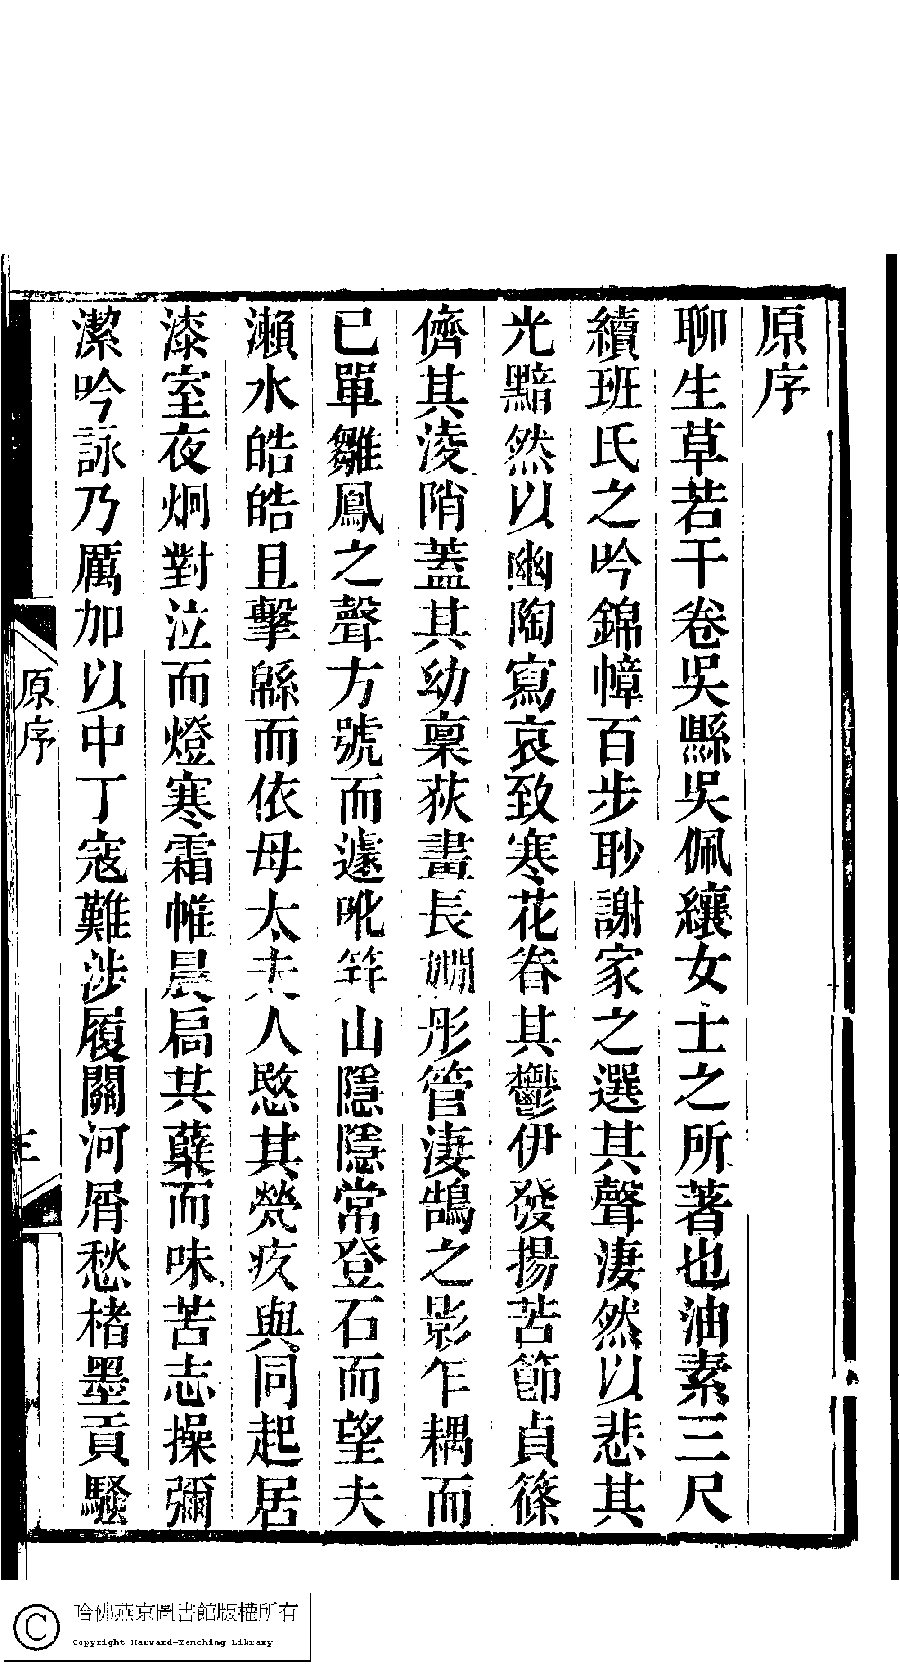 原序
聊生草若干卷吳縣吳佩纕女士之所著也油素三尺
續班氏之吟錦幛百步耖謝家之選其聲淒然以悲其
光黯然以幽陶寫哀致寒花眷其鬱伊發揚苦節貞篠
儕其淩陗蓋其幼稟荻畫長嫺彤管淒鵠之影乍耦而
已單雛鳳之聲方號而遽吪笄山隱隱常登石而望夫
瀨水皓皓且擊緜而依母太夫人愍其煢疚與同起居
漆室夜炯對泣而燈寒霜帷晨扃共蘗而味苦志操彌
潔吟詠乃厲加以中丁寇難涉履關河屑愁楮墨貢騷
原序
三
哈佛燕京圖書館版權所有
Copyright Harvard-Yenching Library